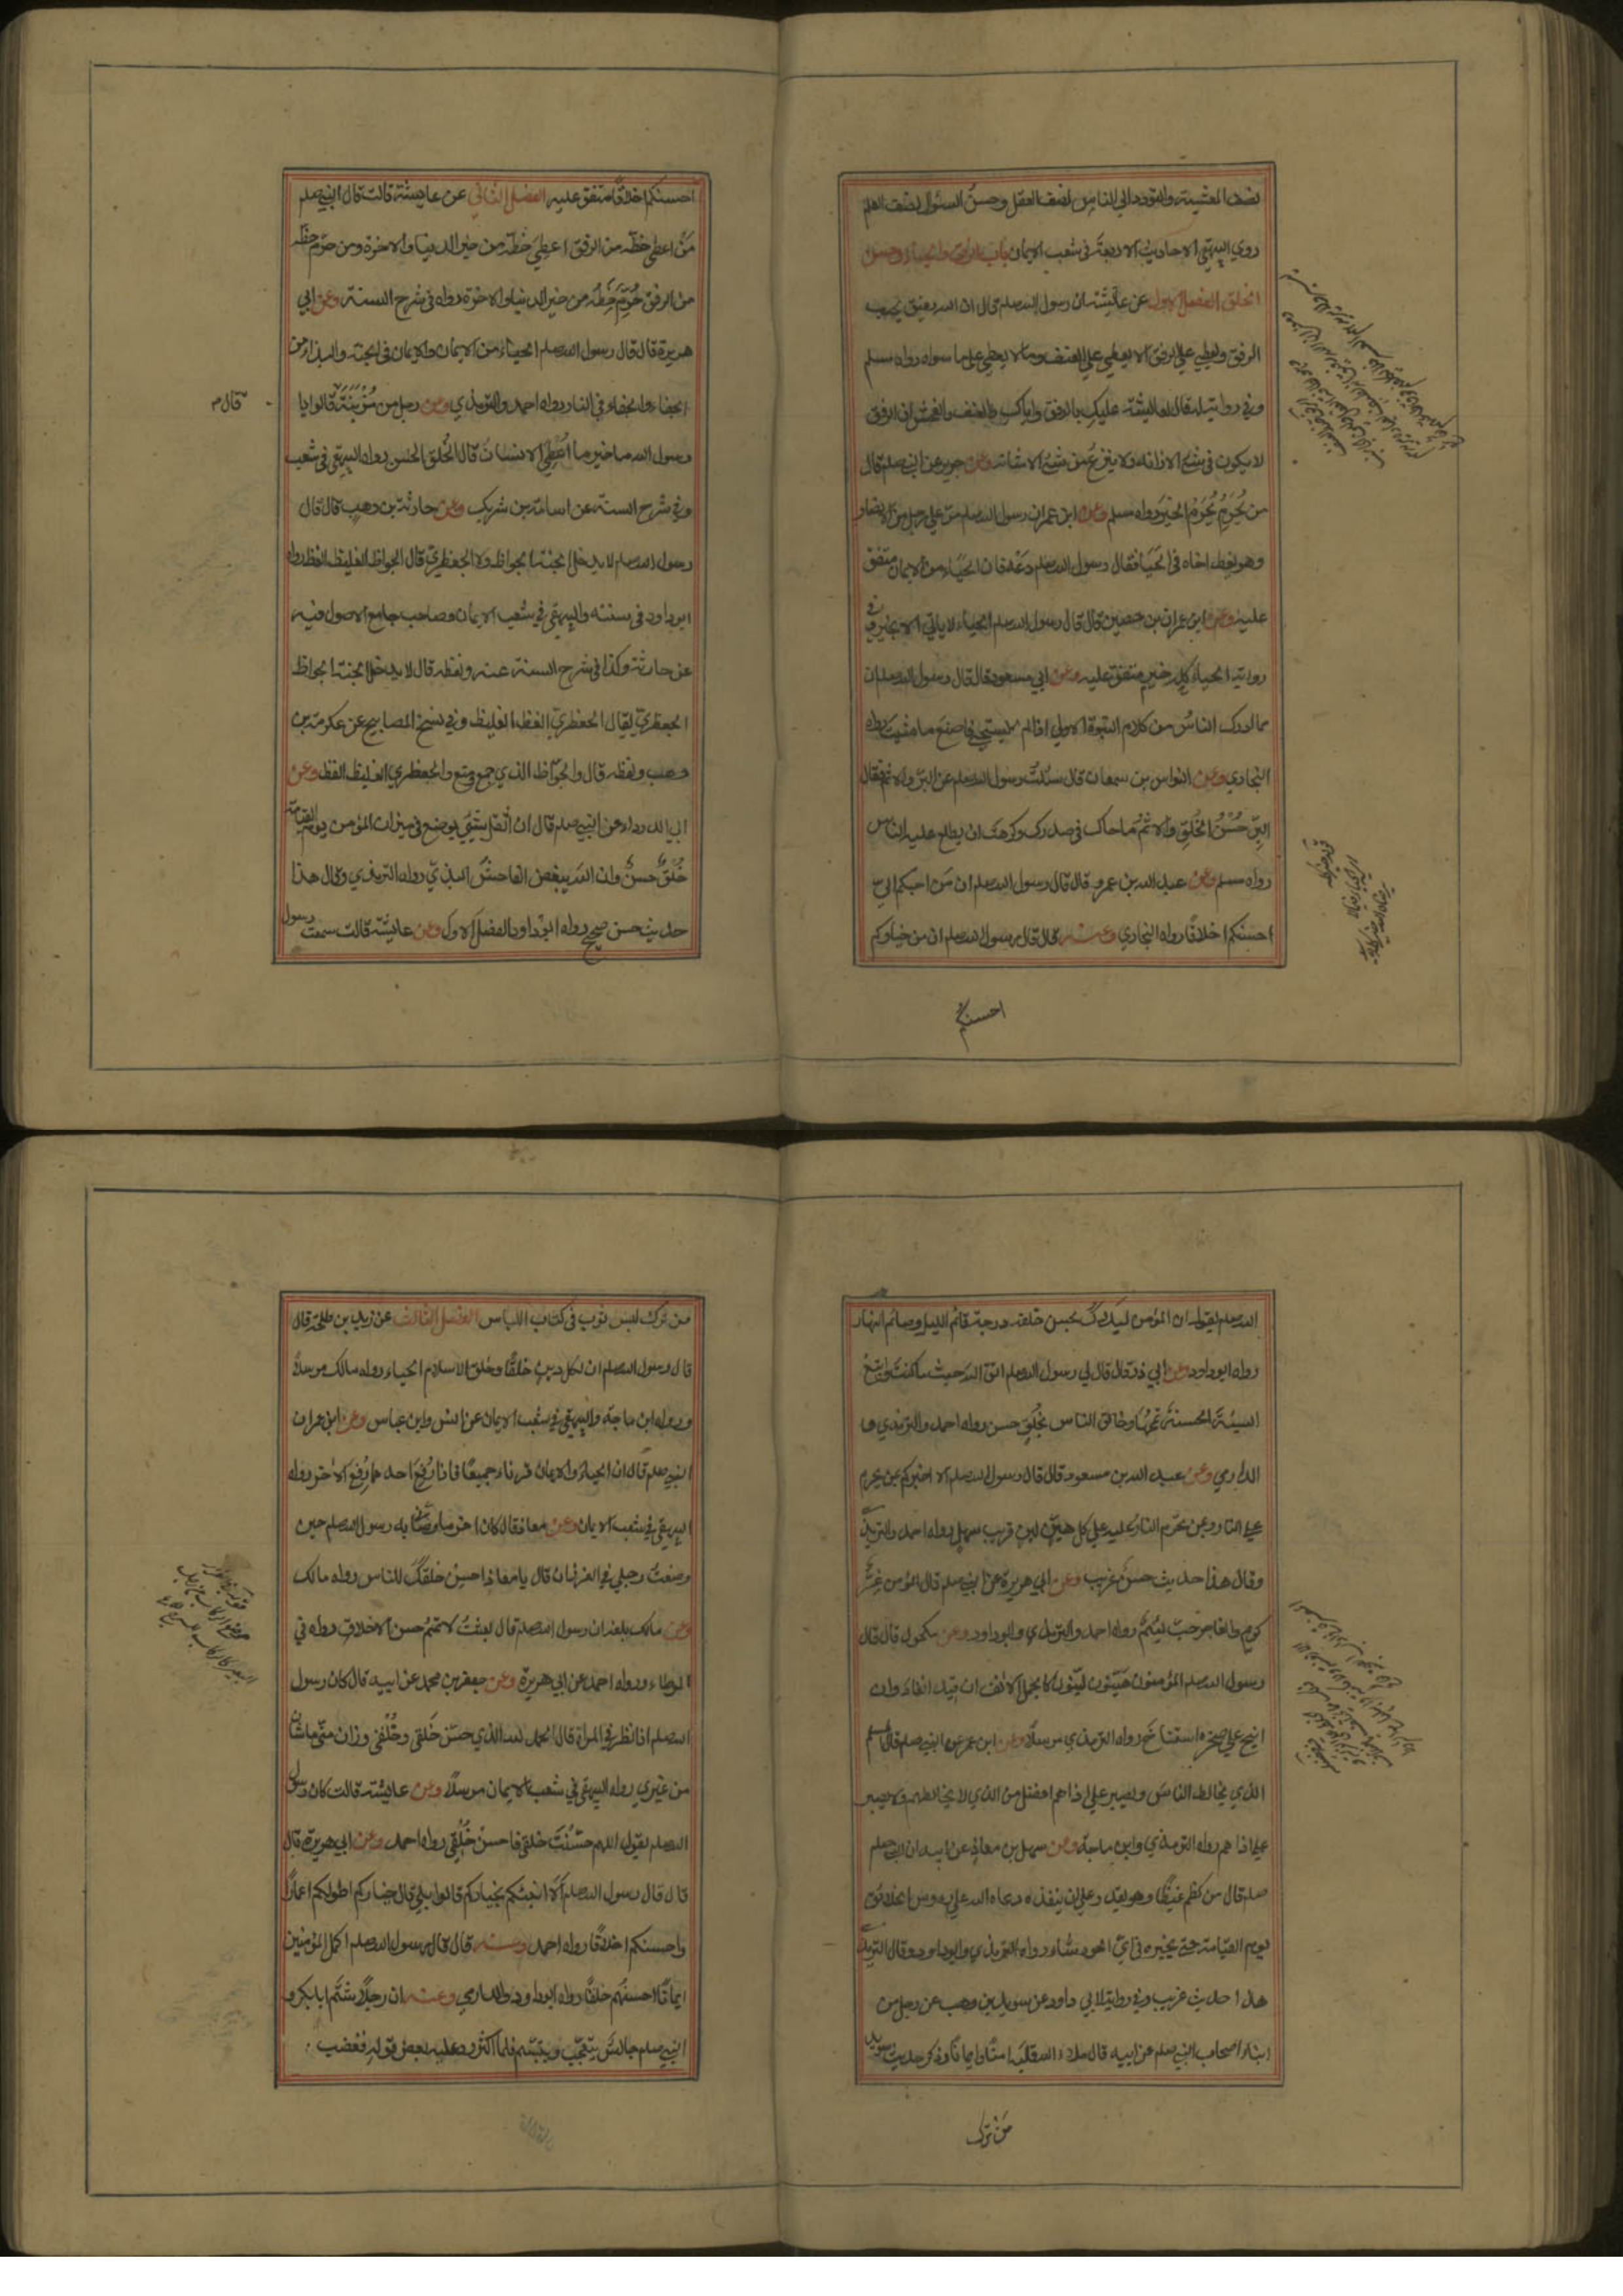 نصف المعيشة والتودد الي الناس نصف العقل وحسن السئوال نصف العلم
روي البيهقي الاحاديث الاربعة في شعب الايمان باب الرفق والحياء وحسن
الخلق الفصل الاول عن عائشة ان رسول الله صلم قال ان الله رفيق يحب
الرفق ويعطي علي الرفق ما لا يعطي علي العنف وما لا يعطي علي ما سواه رواه مسلم
وفي رواية له قال لعائشة عليك بالرفق واياك والعنف والفحش ان الرفق
لا يكون في شئ الا زانه ولا ينزع من شئ الا شانه وعن جرير عن النبي صلم قال
من يُحرَم يُحرَم الخير رواه مسلم وعن ابن عمر ان رسول الله صلم مر علي رجل من الانصار
وهو يعظ اخاه في الحيا فقال رسول الله صلم دعه فان الحياء من الايمان متفق
عليه وعن ابن عمران بن حصين قال قال رسول الله صلم الحياء لا ياتي الا بخير وفي
رواية الحياء كله خير متفق عليه وعن ابي مسعود قال قال رسول الله صلم ان
مما ادرك الناس من كلام النبوة الاولي اذا لم تستحي فاصنع ما شئت رواه
البخاري وعن النواس بن سمعان قال سئلت رسول الله صلم عن البر والاثم فقال
البر حُسْنُ الخُلُقِ والاثم ما حاك في صدرك وكرهت ان يطلع عليه الناس
رواه مسلم وعن عبد الله بن عمرو قال قال رسول الله صلم ان من احبكم الي
احسنكم اخلاقا رواه البخاري وعنه قال قال رسول الله صلم ان من خياركم
احسنكم
احسنكم اخلاقا متفق عليه الفصل الثاني عن عايشة قالت قال النبي صلم
من اعطي حظه من الرفق اعطي حظه من خير الدنيا والاخرة ومن حرم حظه
من الرفق حُرِم حظه من خير الدنيا والاخرة رواه في شرح السنة وعن ابي
هريرة قال قال رسول الله صلم الحياء من الايمان والايمان في الجنة والبذاء من
الجفاء والجفاء في النار رواه احمد والترمذي وعن رجل من مُزَيْنَة قالوا يا
قال م
رسول الله ما خير ما اُعْطِيَ الانسان قال الخُلق الحسن رواه البيهقي في شعب
وفي شرح السنة عن اسامة بن شريك وعن حارثة بن وهب قال قال
رسول الله صلم لا يدخل الجنة الجواظ ولا الجعظري قال الجواظ الغليظ الفظ رواه
ابوداود في سننه والبيهقي في شعب الايمان وصاحب جامع الاصول فيه
عن حارثة وكذا في شرح السنة عنه ولفظه قال لا يدخل الجنة الجواظ
الجعظري يقال الجعظري الفظ الغليظ وفي نسخ المصابيح عن عكرمة بن
وهب ولفظه قال والجوّاظ الذي جمع ومنع والجعظري الغليظ الفظ وعن
ابي الدرداء عن النبي صلم قال ان اثقل شئ يوضع في ميزان المؤمن يوم القيامة
خُلقٌ حسنٌ وان الله يبغض الفاحش البذي رواه الترمذي وقال هذا
حديث حسن صحيح رواه ابوداود الفصل الاول وعن عائشة قالت سمعت رسول
الله صلم يقول ان المؤمن ليدرك بحسن خلقه درجة قائم الليل وصائم النهار
رواه ابوداود وعن ابي ذر قال قال لي رسول الله صلم اتق الله حيث ما كنت واتبع
السيئة الحسنة تمحها وخالق الناس بخُلُقٍ حسن رواه احمد والترمذي و
الدارمي وعن عبد الله بن مسعود قال قال رسول الله صلم الا اخبركم بمن يحرم
علي النار وبمن تحرم النار عليه علي كل هين لين قريب سهل رواه احمد والترمذي
وقال هذا حديث حسن غريب وعن ابي هريرة عن النبي صلم قال المؤمن غِرّ
كريم والفاجر خب لئيم رواه احمد والترمذي وابوداود وعن مكحول قال قال
رسول الله صلم المؤمنون هَيّنون ليّنون كالجمل الانف ان قيد انقاد وان
انيخ علي صخرة استناخ رواه الترمذي مرسلا وعن ابن عمر عن النبي صلم قال المسلم
الذي يخالط الناس ويصبر علي اذاهم افضل من الذي لا يخالطهم ولا يصبر
علي اذاهم رواه الترمذي وابن ماجه وعن سهل بن معاذ عن ابيه ان النبي
صلم قال من كظم غيظا وهو يقدر علي ان ينفذه دعاه الله علي رءوس الخلائق
يوم القيامة حتي يخيره في اي الحور شاء رواه الترمذي وابوداود وقال الترمذي
هذا حديث غريب وفي رواية لابي داود عن سويد بن وهب عن رجل من
ابناء اصحاب النبي صلم عن ابيه قال ملاء الله قلبه امنا وايمانا وذكر حديث سويد
من ترك
من ترك لبس ثوب في كتاب اللباس الفصل الثالث عن زيد بن طلحة قال
قال رسول الله صلم ان لكل دين خلقًا وخلق الاسلام الحياء رواه مالك مرسلا
ورواه ابن ماجة والبيهقي في شعب الايمان عن انس وابن عباس وعن ابن عمر ان
النبي صلم قال ان الحياء والايمان قرناء جميعًا فاذا رُفع احدهما رُفع الاخر رواه
البيهقي في شعب الايمان وعن معاذ قال كان اخر ما وصاني به رسول الله صلم حين
وضعت رجلي في الغرز ان قال يا معاذ احسن خلقك للناس رواه مالك
وعن مالك بلغه ان رسول الله صلم قال بعثت لاتمم حسن الاخلاق رواه في
الموطاء ورواه احمد عن ابي هريرة وعن جعفر بن محمد عن ابيه قال كان رسول
الله صلم اذا نظر في المراة قال الحمد لله الذي حسّن خَلقي وخُلُقي وزان مني ما شان
من غيري رواه البيهقي في شعب الايمان مرسلا وعن عائشة قالت كان رسول
الله صلم يقول اللهم حسّنْت خلقي فاحسن خُلُقي رواه احمد وعن ابي هريرة قال
قال قال رسول الله صلم اَلا انبئكم بخياركم قالوا بلي قال خياركم اطولكم اعمارًا
واحسنكم اخلاقًا رواه احمد وعنه قال قال رسول الله صلم اكمل المؤمنين
ايمانًا احسنهم خلقًا رواه ابوداود والدارمي وعنه ان رجلا شتم ابا بكر و
النبي صلم جالسٌ يتعجّب ويتبسّم فلما اكثر رد عليه بعض قوله فغضب